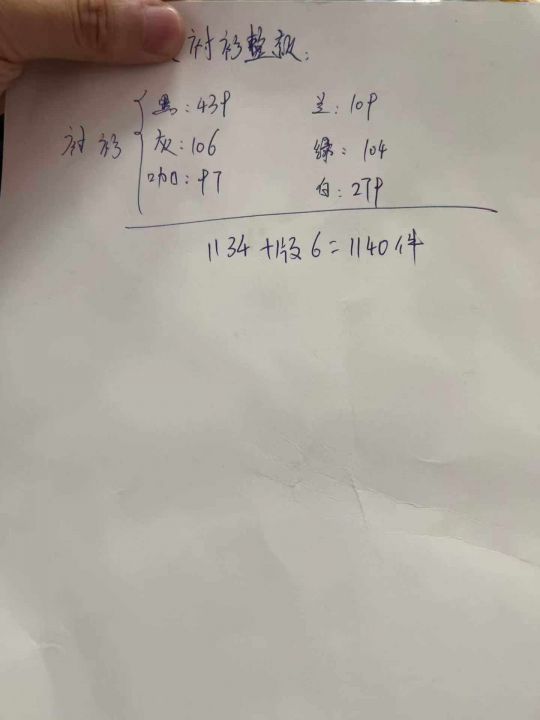 衬衫整
黑:439 兰:109
衬衫 灰:106 绿:104
咖:97 白:279
1134+版6=1140件